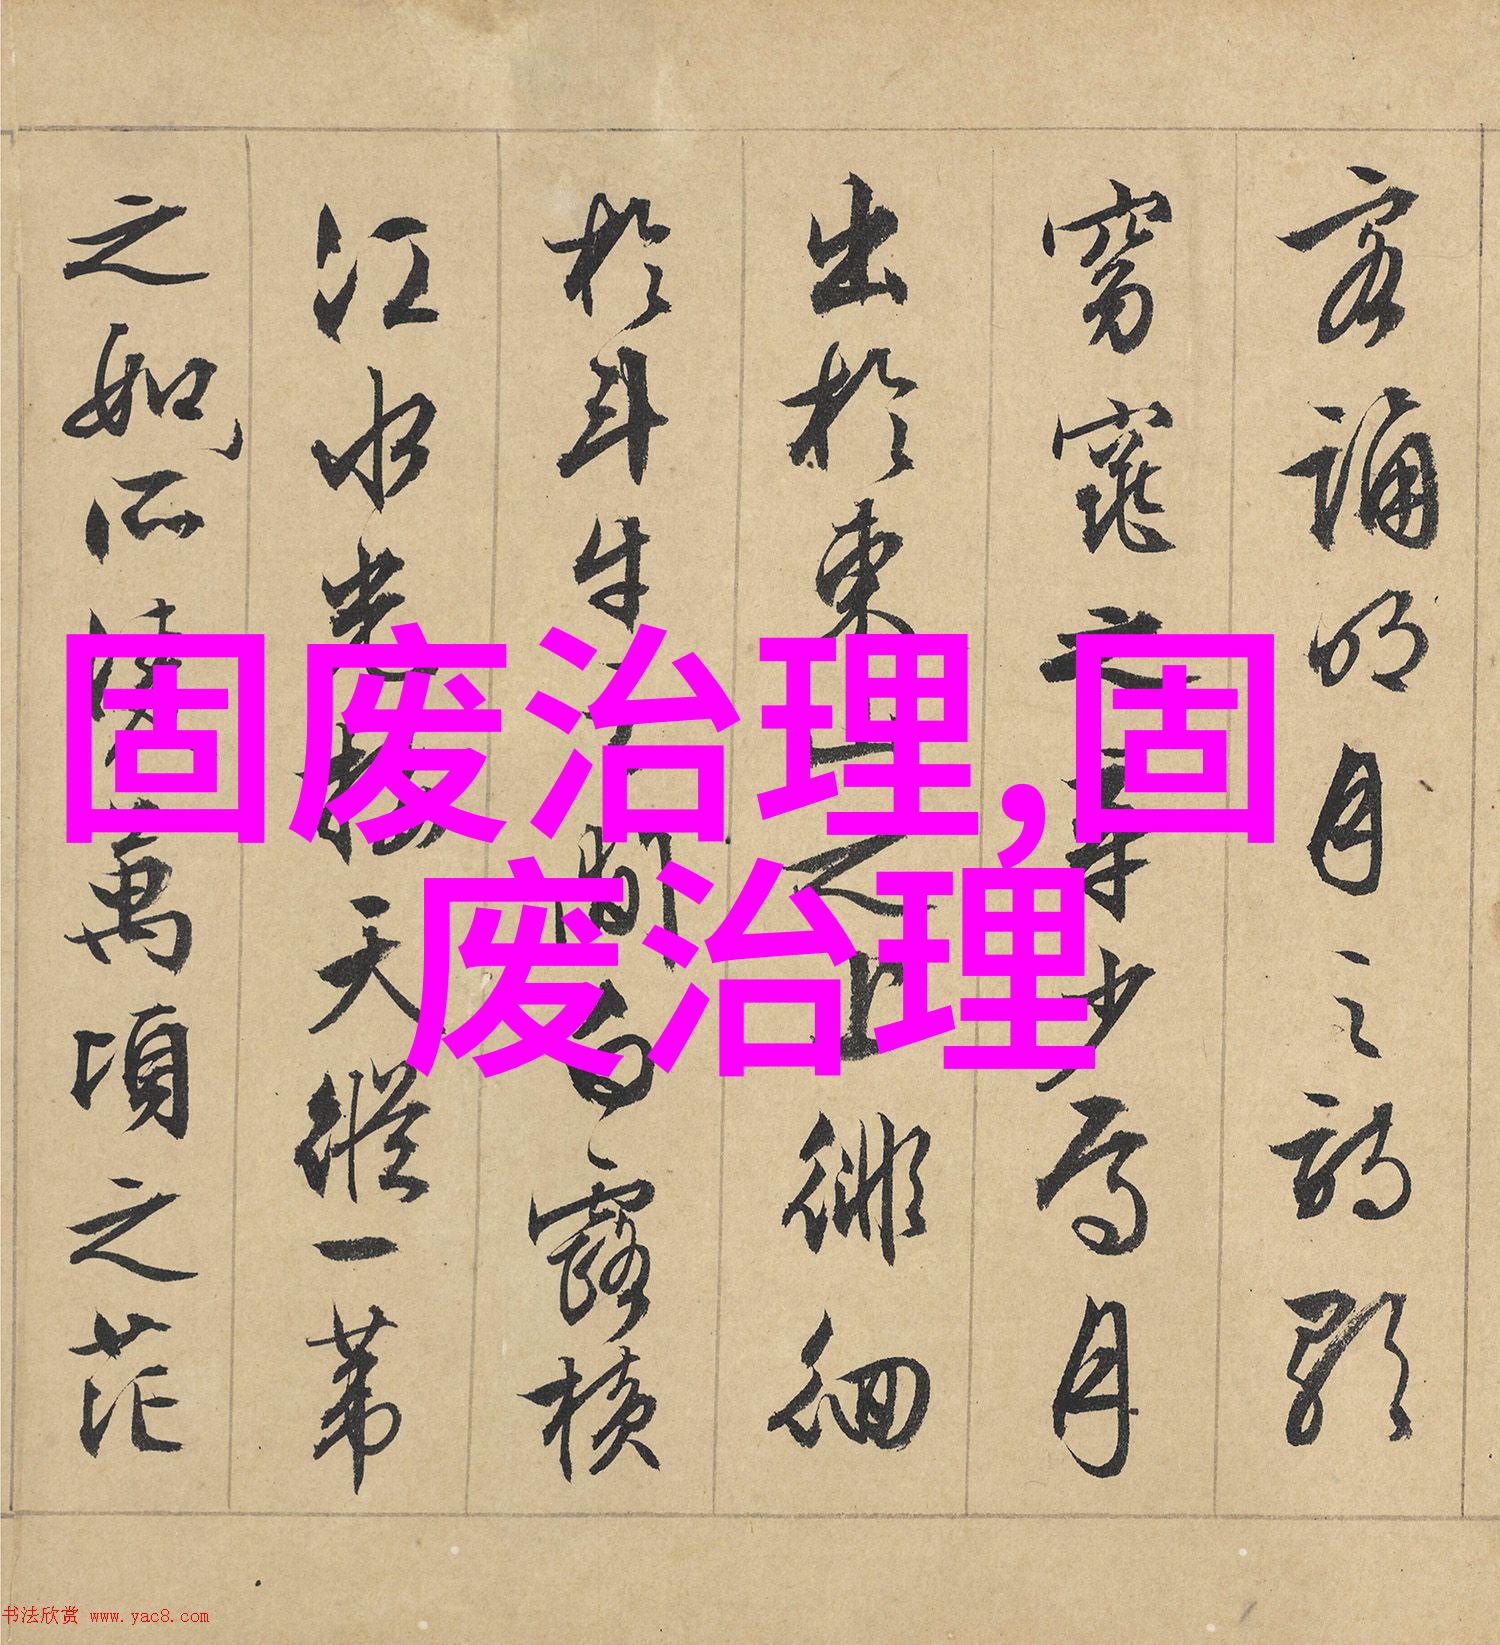 客誦明月之詩歌
窈窕之章少焉月
出於東山之上徘徊
於斗牛之間白露橫
江水光接天縱一葦
之如所凌萬頃之茫
固废治理,固
废治理
书法欣赏 www.yac8.com